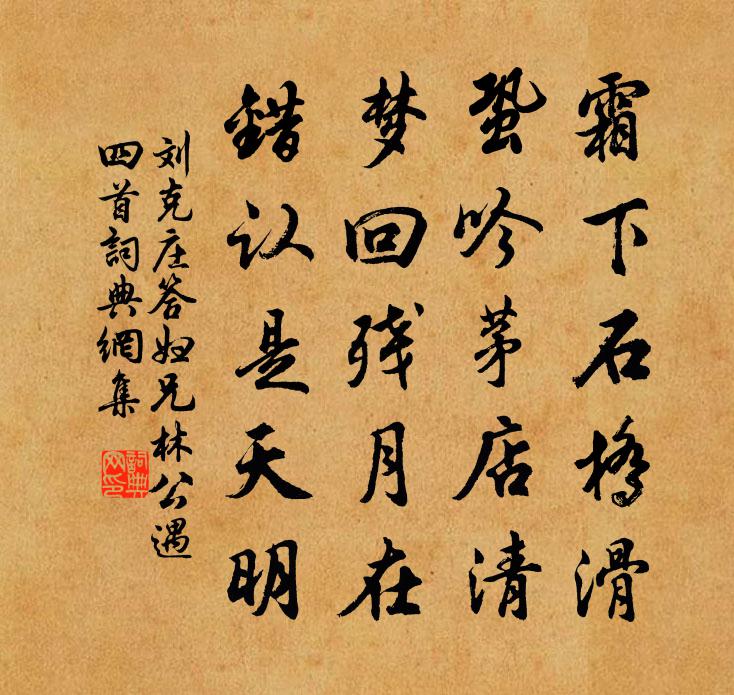 霜下石桥滑
蛩吟茅店清
梦回残月在
錯认是天明
刘克庄答妇兄林公遇
四首詞典網集
詞典
网印